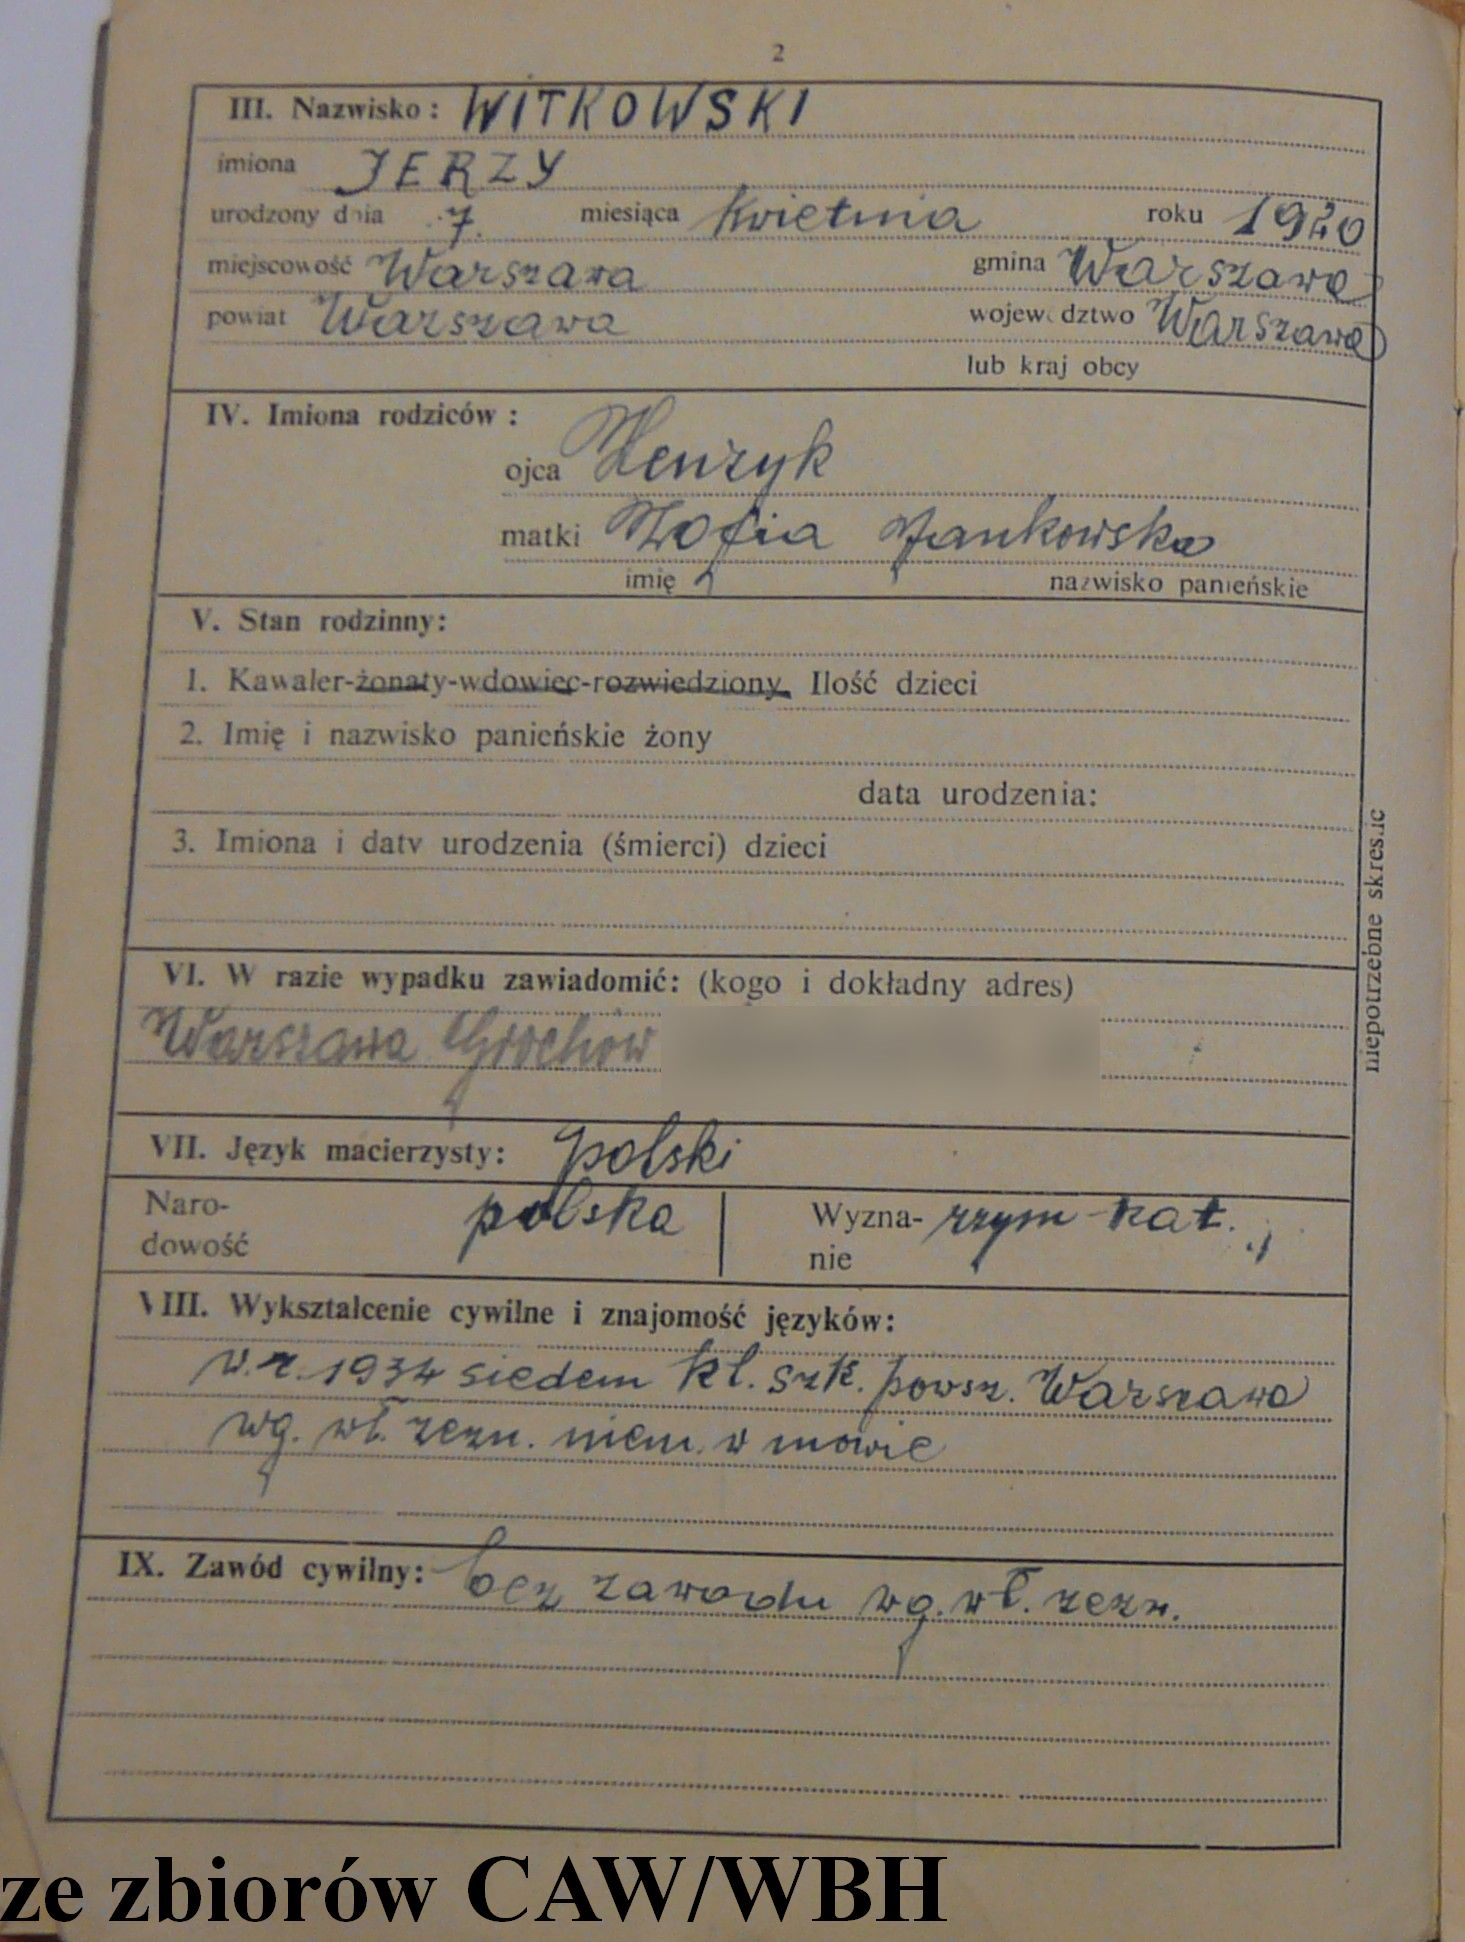 2
III. Nazwisko: WITKOWSKI
imiona JERZY
urodzony dnia 7. miesiąca Kwietnia roku 1920
miejscowość Warszawa gmina Warszawa
powiat Warszawa województwo Warszawa
lub kraj obcy
IV. Imiona rodziców:
ojca Henryk
matki Zofia Jankowska
imię nazwisko panieńskie
V. Stan rodzinny:
1. Kawaler-żonaty-wdowiec-rozwiedziony. Ilość dzieci
2. Imię i nazwisko panieńskie żony
data urodzenia:
3. Imiona i daty urodzenia (śmierci) dzieci
niepotrzebne skreślić
VI. W razie wypadku zawiadomić: (kogo i dokładny adres)
Warszawa Grochów
VII. Język macierzysty: polski
Naro- polska Wyzna- rzym-kat.
dowość nie
VIII. Wykształcenie cywilne i znajomość języków:
w.r. 1934 siedem kl. szk. powsz. Warszawa
wg. wł. zezn. niem. w mowie
IX. Zawód cywilny: bez zawodu wg. wł. zezn.
ze zbiorów CAW/WBH